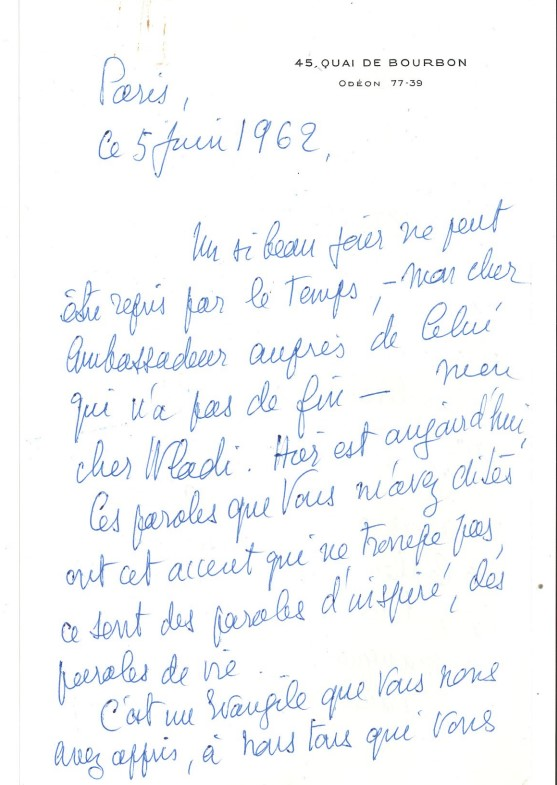 45, QUAI DE BOURBON
ODÉON 77-39
Paris,
ce 5 Juin 1962,
Un si beau jour ne peut
être repris par le temps, – mon cher
Ambassadeur auprès de Celui
qui n'a pas de fin – mon
cher Wladi. Hier est aujourd'hui,
Ces paroles que Vous m'avez dites
ont cet accent qui ne trompe pas,
ce sont des paroles d'inspiré, des
paroles de vie.
C'est un Evangile que Vous nous
avez appris, à nous tous qui Vous